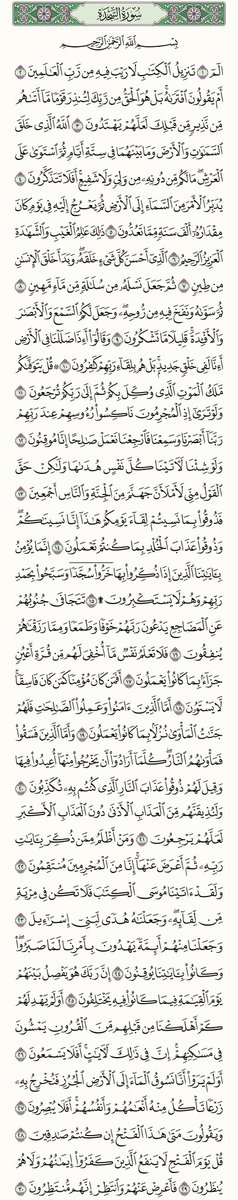 سُورَةُ السَّجْدَةِ
بِسْمِ اللَّهِ الرَّحْمَٰنِ الرَّحِيمِ
الٓمٓ ١ تَنزِيلُ الْكِتَابِ لَا رَيْبَ فِيهِ مِن رَّبِّ الْعَالَمِينَ ٢
أَمْ يَقُولُونَ افْتَرَاهُ ۚ بَلْ هُوَ الْحَقُّ مِن رَّبِّكَ لِتُنذِرَ قَوْمًا مَّا أَتَاهُم
مِّن نَّذِيرٍ مِّن قَبْلِكَ لَعَلَّهُمْ يَهْتَدُونَ ٣ اللَّهُ الَّذِي خَلَقَ
السَّمَٰوَٰتِ وَالْأَرْضَ وَمَا بَيْنَهُمَا فِي سِتَّةِ أَيَّامٍ ثُمَّ اسْتَوَىٰ عَلَى
الْعَرْشِ ۖ مَا لَكُم مِّن دُونِهِ مِن وَلِيٍّ وَلَا شَفِيعٍ ۚ أَفَلَا تَتَذَكَّرُونَ ٤
يُدَبِّرُ الْأَمْرَ مِنَ السَّمَاءِ إِلَى الْأَرْضِ ثُمَّ يَعْرُجُ إِلَيْهِ فِي يَوْمٍ كَانَ
مِقْدَارُهُ أَلْفَ سَنَةٍ مِّمَّا تَعُدُّونَ ٥ ذَٰلِكَ عَالِمُ الْغَيْبِ وَالشَّهَادَةِ
الْعَزِيزُ الرَّحِيمُ ٦ الَّذِي أَحْسَنَ كُلَّ شَيْءٍ خَلَقَهُ ۖ وَبَدَأَ خَلْقَ الْإِنسَانِ
مِن طِينٍ ٧ ثُمَّ جَعَلَ نَسْلَهُ مِن سُلَالَةٍ مِّن مَّاءٍ مَّهِينٍ ٨
ثُمَّ سَوَّاهُ وَنَفَخَ فِيهِ مِن رُّوحِهِ ۖ وَجَعَلَ لَكُمُ السَّمْعَ وَالْأَبْصَارَ
وَالْأَفْئِدَةَ ۚ قَلِيلًا مَّا تَشْكُرُونَ ٩ وَقَالُوا أَإِذَا ضَلَلْنَا فِي الْأَرْضِ
أَإِنَّا لَفِي خَلْقٍ جَدِيدٍ ۚ بَلْ هُم بِلِقَاءِ رَبِّهِمْ كَافِرُونَ ١٠ ۞ قُلْ يَتَوَفَّاكُم
مَّلَكُ الْمَوْتِ الَّذِي وُكِّلَ بِكُمْ ثُمَّ إِلَىٰ رَبِّكُمْ تُرْجَعُونَ ١١
وَلَوْ تَرَىٰ إِذِ الْمُجْرِمُونَ نَاكِسُو رُءُوسِهِمْ عِندَ رَبِّهِمْ
رَبَّنَا أَبْصَرْنَا وَسَمِعْنَا فَارْجِعْنَا نَعْمَلْ صَالِحًا إِنَّا مُوقِنُونَ ١٢
وَلَوْ شِئْنَا لَآتَيْنَا كُلَّ نَفْسٍ هُدَاهَا وَلَٰكِنْ حَقَّ
الْقَوْلُ مِنِّي لَأَمْلَأَنَّ جَهَنَّمَ مِنَ الْجِنَّةِ وَالنَّاسِ أَجْمَعِينَ ١٣
فَذُوقُوا بِمَا نَسِيتُمْ لِقَاءَ يَوْمِكُمْ هَٰذَا إِنَّا نَسِينَاكُمْ ۖ
وَذُوقُوا عَذَابَ الْخُلْدِ بِمَا كُنتُمْ تَعْمَلُونَ ١٤ إِنَّمَا يُؤْمِنُ
بِآيَاتِنَا الَّذِينَ إِذَا ذُكِّرُوا بِهَا خَرُّوا سُجَّدًا وَسَبَّحُوا بِحَمْدِ
رَبِّهِمْ وَهُمْ لَا يَسْتَكْبِرُونَ ۩ ١٥ تَتَجَافَىٰ جُنُوبُهُمْ
عَنِ الْمَضَاجِعِ يَدْعُونَ رَبَّهُمْ خَوْفًا وَطَمَعًا وَمِمَّا رَزَقْنَاهُمْ
يُنفِقُونَ ١٦ فَلَا تَعْلَمُ نَفْسٌ مَّا أُخْفِيَ لَهُم مِّن قُرَّةِ أَعْيُنٍ
جَزَاءً بِمَا كَانُوا يَعْمَلُونَ ١٧ أَفَمَن كَانَ مُؤْمِنًا كَمَن كَانَ فَاسِقًا ۚ
لَّا يَسْتَوُونَ ١٨ أَمَّا الَّذِينَ آمَنُوا وَعَمِلُوا الصَّالِحَاتِ فَلَهُمْ
جَنَّاتُ الْمَأْوَىٰ نُزُلًا بِمَا كَانُوا يَعْمَلُونَ ١٩ وَأَمَّا الَّذِينَ فَسَقُوا
فَمَأْوَاهُمُ النَّارُ ۖ كُلَّمَا أَرَادُوا أَن يَخْرُجُوا مِنْهَا أُعِيدُوا فِيهَا
وَقِيلَ لَهُمْ ذُوقُوا عَذَابَ النَّارِ الَّذِي كُنتُم بِهِ تُكَذِّبُونَ ٢٠
وَلَنُذِيقَنَّهُم مِّنَ الْعَذَابِ الْأَدْنَىٰ دُونَ الْعَذَابِ الْأَكْبَرِ
لَعَلَّهُمْ يَرْجِعُونَ ٢١ وَمَنْ أَظْلَمُ مِمَّن ذُكِّرَ بِآيَاتِ
رَبِّهِ ثُمَّ أَعْرَضَ عَنْهَا ۚ إِنَّا مِنَ الْمُجْرِمِينَ مُنتَقِمُونَ ٢٢
وَلَقَدْ آتَيْنَا مُوسَى الْكِتَابَ فَلَا تَكُن فِي مِرْيَةٍ
مِّن لِّقَائِهِ ۖ وَجَعَلْنَاهُ هُدًى لِّبَنِي إِسْرَائِيلَ ٢٣
وَجَعَلْنَا مِنْهُمْ أَئِمَّةً يَهْدُونَ بِأَمْرِنَا لَمَّا صَبَرُوا ۖ
وَكَانُوا بِآيَاتِنَا يُوقِنُونَ ٢٤ إِنَّ رَبَّكَ هُوَ يَفْصِلُ بَيْنَهُمْ
يَوْمَ الْقِيَامَةِ فِيمَا كَانُوا فِيهِ يَخْتَلِفُونَ ٢٥ أَوَلَمْ يَهْدِ لَهُمْ
كَمْ أَهْلَكْنَا مِن قَبْلِهِم مِّنَ الْقُرُونِ يَمْشُونَ
فِي مَسَاكِنِهِمْ ۚ إِنَّ فِي ذَٰلِكَ لَآيَاتٍ ۖ أَفَلَا يَسْمَعُونَ ٢٦
أَوَلَمْ يَرَوْا أَنَّا نَسُوقُ الْمَاءَ إِلَى الْأَرْضِ الْجُرُزِ فَنُخْرِجُ بِهِ
زَرْعًا تَأْكُلُ مِنْهُ أَنْعَامُهُمْ وَأَنفُسُهُمْ ۖ أَفَلَا يُبْصِرُونَ ٢٧
وَيَقُولُونَ مَتَىٰ هَٰذَا الْفَتْحُ إِن كُنتُمْ صَادِقِينَ ٢٨
قُلْ يَوْمَ الْفَتْحِ لَا يَنفَعُ الَّذِينَ كَفَرُوا إِيمَانُهُمْ وَلَا هُمْ
يُنظَرُونَ ٢٩ فَأَعْرِضْ عَنْهُمْ وَانتَظِرْ إِنَّهُم مُّنتَظِرُونَ ٣٠